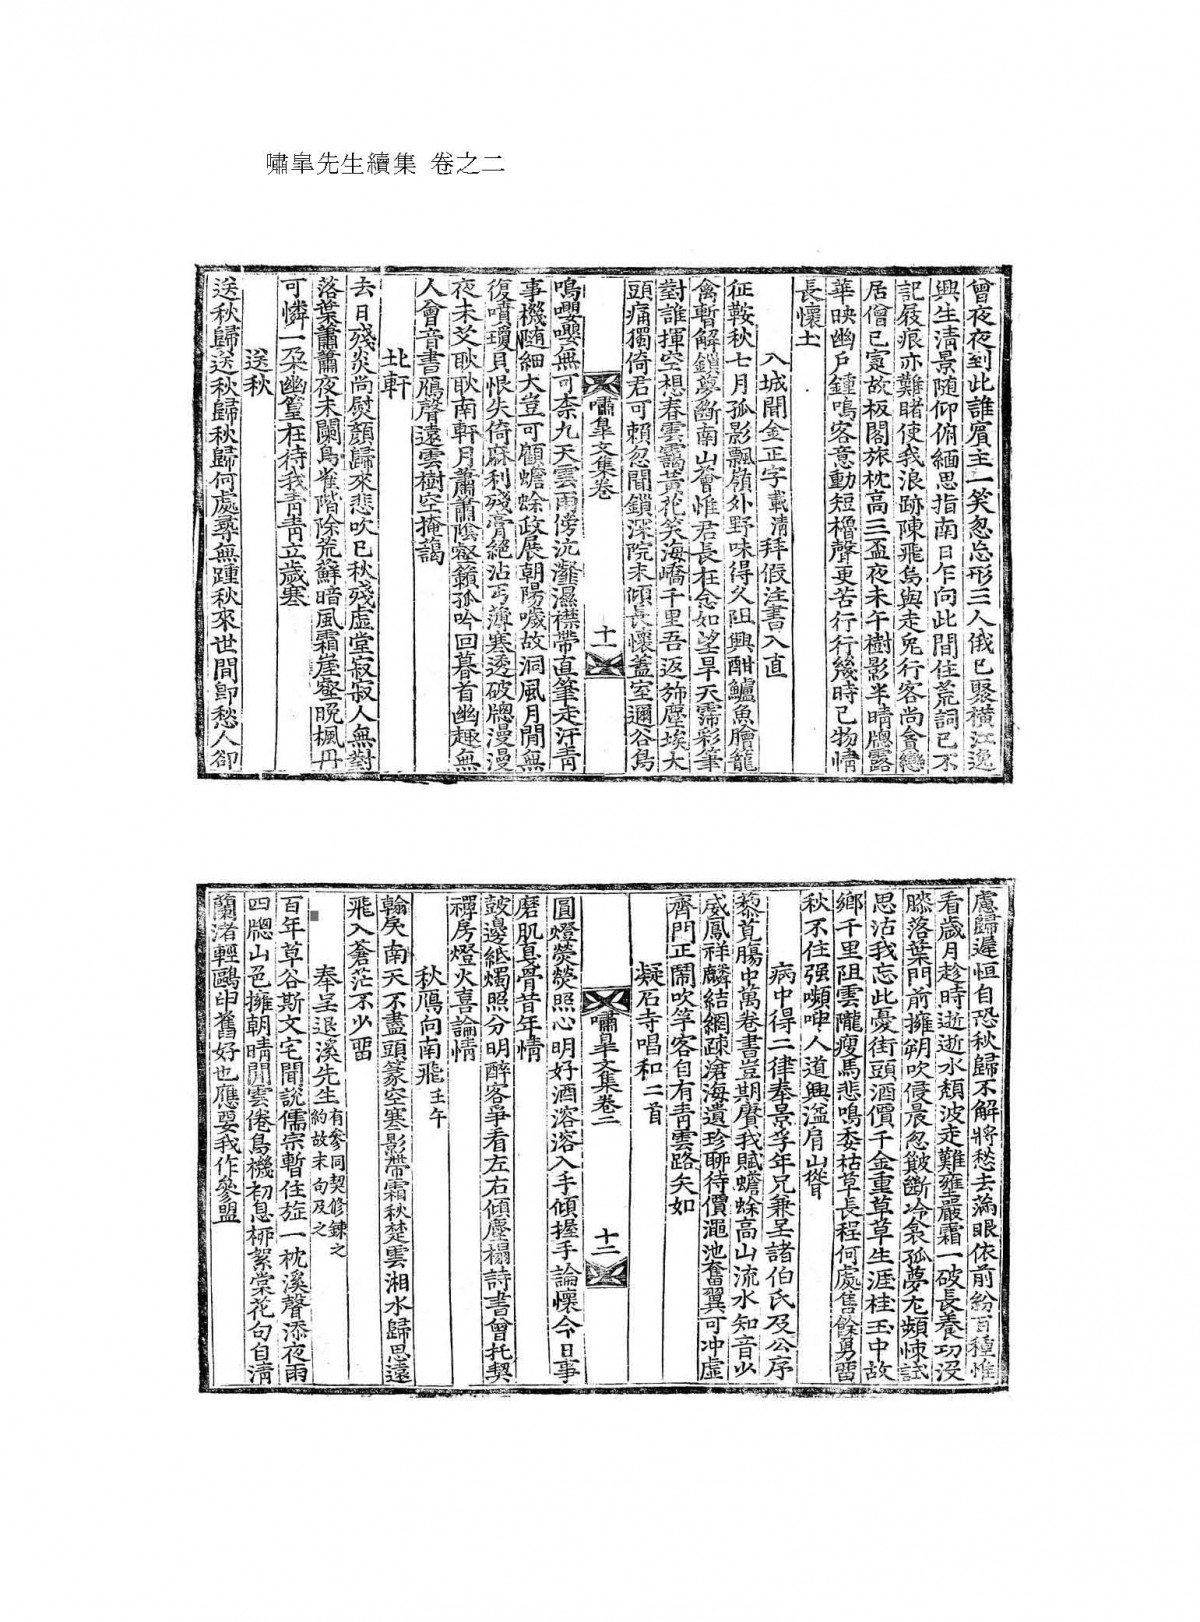 嘯皐先生續集 卷之二
曾夜夜到此誰賓主一笑忽忘形三人俄已聚橫江逸
興生淸景隨仰俯緬思指南日乍向此間住荒詞已不
記屐痕亦難睹使我浪跡陳飛烏與走兎行客尙會戀
居僧已寔故板閣旅枕高三盃夜未午樹影半晴牕露
華映幽戶鍾鳴客意動短櫓聲更苦行行幾時已物情
長懷土
入城聞金正字載淸拜假注書入直
征鞍秋七月孤影飄嶺外野味得久阻興酣鱸魚膾籠
禽暫解鎖夢斷南山薈惟君長在念如望旱天霈彩筆
對誰揮空想春雲靄黃花笑海嶠千里吾返斾塵埃大
頭痛獨倚君可賴忽聞鎖深院未傾長懷蓋室邇谷鳥
嘯皐文集卷 十一
鳴嚶嚶無可柰九天雲雨傍沆瀣濕襟帶直筆走汗靑
事機隨細大豈可顧蟾蜍政展朝陽噦故洞風月閒無
復噴瓊貝恨失倚麻利殘膏絕沾丐薄寒透破牕漫漫
夜未艾耿耿南軒月蕭蕭陰壑籟孤吟回暮首幽趣無
人會音書鴈聲遠雲樹空掩藹
北軒
去日殘炎尙熨顏歸來悲吹已秋殘虛堂寂寂人無對
落葉蕭蕭夜未闌鳥雀階除荒蘚暗風霜崖壑晩楓丹
可憐一朶幽篁在待我靑靑立歲寒
送秋
送秋歸送秋歸秋歸何處尋無踵秋來世間卽愁人卻
慮歸遲恒自恐秋歸不解將愁去滿眼依前紛百種惟
看歲月趁時逝逝水頹波走難壅嚴霜一破長養功沒
膝落葉門前擁朔吹侵晨忽皺斷冷衾孤夢尤頻悚試
思沽我忘此憂街頭酒價千金重草草生涯桂玉中故
鄕千里阻雲隴瘦馬悲鳴委枯草長程何處售餘勇留
秋不住强嚬呻人道興溢肩山聳
病中得二律奉景孚年兄兼呈諸伯氏及公序
藜莧腸中萬卷書豈期賡我賦蟾蜍高山流水知音少
威鳳祥麟結網疎滄海遺珍聊待價澠池奮翼可冲虛
齊門正鬧吹竽客自有靑雲路矢如
凝石寺唱和二首
嘯皐文集卷二 十二
圓燈熒熒照心明好酒溶溶入手傾握手論懷今日事
磨肌息骨昔年情
鼓邊紙燭照分明醉客爭看左右傾塵榻詩書曾托契
禪房燈火喜論情
秋鴈向南飛壬午
翰奐南天不盡頭篆空寒影帶霜秋楚雲湘水歸思遠
飛入蒼茫不少留
奉呈退溪先生有參同契修鍊之約故末句及之
百年草谷斯文宅聞說儒宗暫住旌一枕溪聲添夜雨
四牕山色擁朝晴閒雲倦鳥機初息柳絮棠花句自淸
蘭渚輕鷗申舊好也應要我作參盟